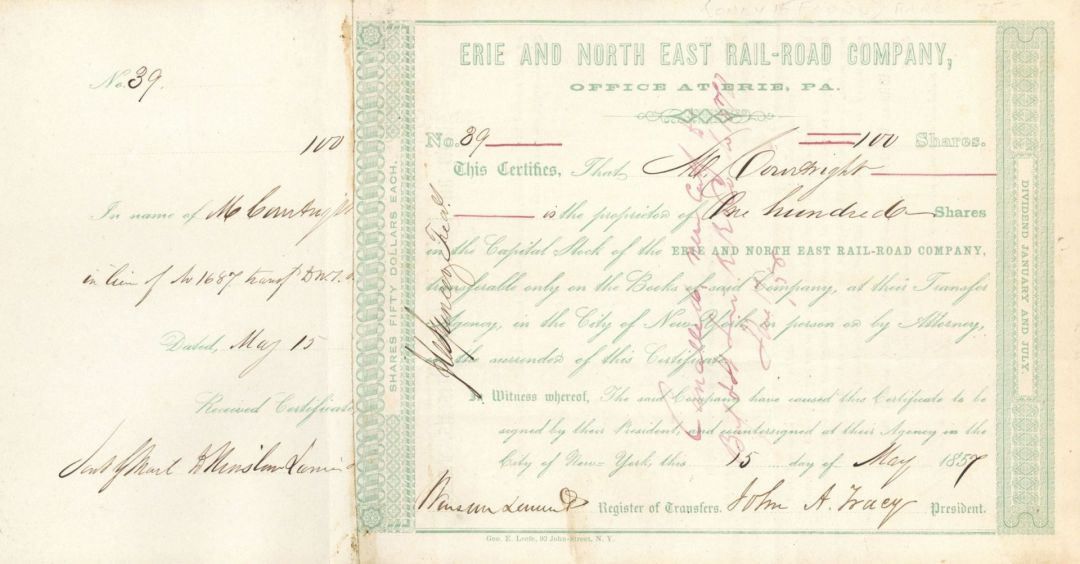 No. 39.
100
In name of M Courtright
in lieu of No 1687 transf D.W.
Dated, May 15
Received Certificate
Sent by Mail Winslow Lanier
ERIE AND NORTH EAST RAIL-ROAD COMPANY,
OFFICE AT ERIE, PA.
No. 39 100 Shares.
This Certifies, That M. Courtright
is the proprietor of One hundred Shares
in the Capital Stock of the ERIE AND NORTH EAST RAIL-ROAD COMPANY,
transferable only on the Books of said Company, at their Transfer
Agency, in the City of New York, in person or by Attorney,
on the surrender of this Certificate.
In Witness whereof, The said Company have caused this Certificate to be
signed by their President, and countersigned at their Agency in the
City of New=York, this 15 day of May 1857
Winslow Lanier & Co Register of Transfers. John A. Tracy President.
Geo. E. Leefe, 93 John-Street, N. Y.
SHARES FIFTY DOLLARS EACH.
DIVIDEND JANUARY AND JULY.
Treas.
Cancelled